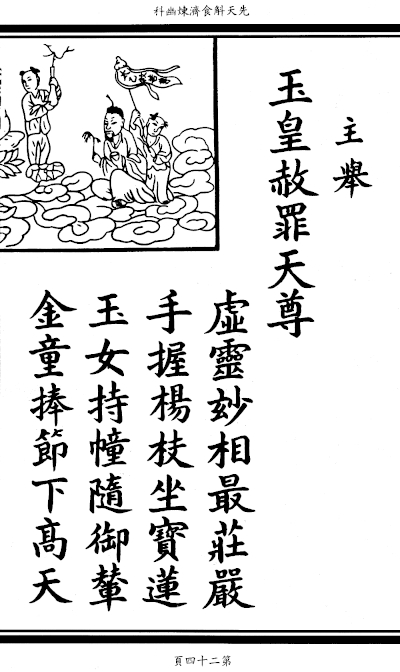 先天斛食濟煉幽科
主舉
玉皇赦罪天尊
虛靈玅相最莊嚴
手握楊枝坐寶蓮
玉女持幢隨御輦
金童捧節下髙天
第二十四頁